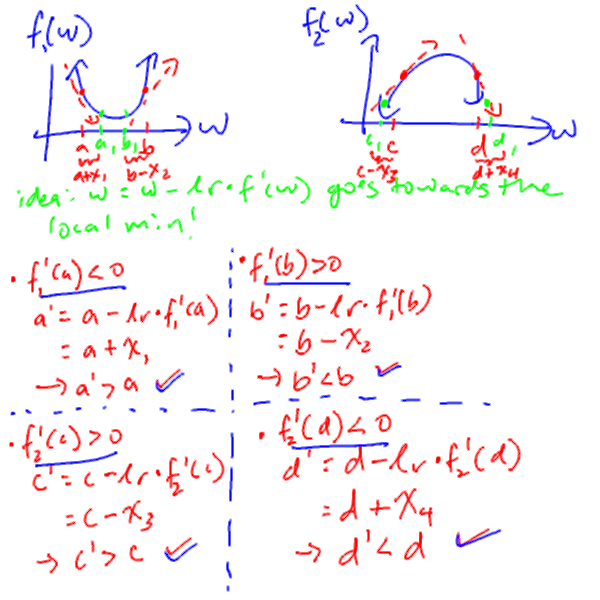 f₁(w)
f₂(w)
w
w
a a₁ b₁ b
a+x₁ b-x₂
c₁ c d d₁
c-x₃ d+x₄
idea: w = w - lr·f'(w) goes towards the
local min!
· f₁'(a) < 0
a' = a - lr·f₁'(a)
= a + x₁
→ a' > a ✓
· f₁'(b) > 0
b' = b - lr·f₁'(b)
= b - x₂
→ b' < b ✓
· f₂'(c) > 0
c' = c - lr·f₂'(c)
= c - x₃
→ c' > c ✓
· f₂'(d) < 0
d' = d - lr·f₂'(d)
= d + x₄
→ d' < d ✓